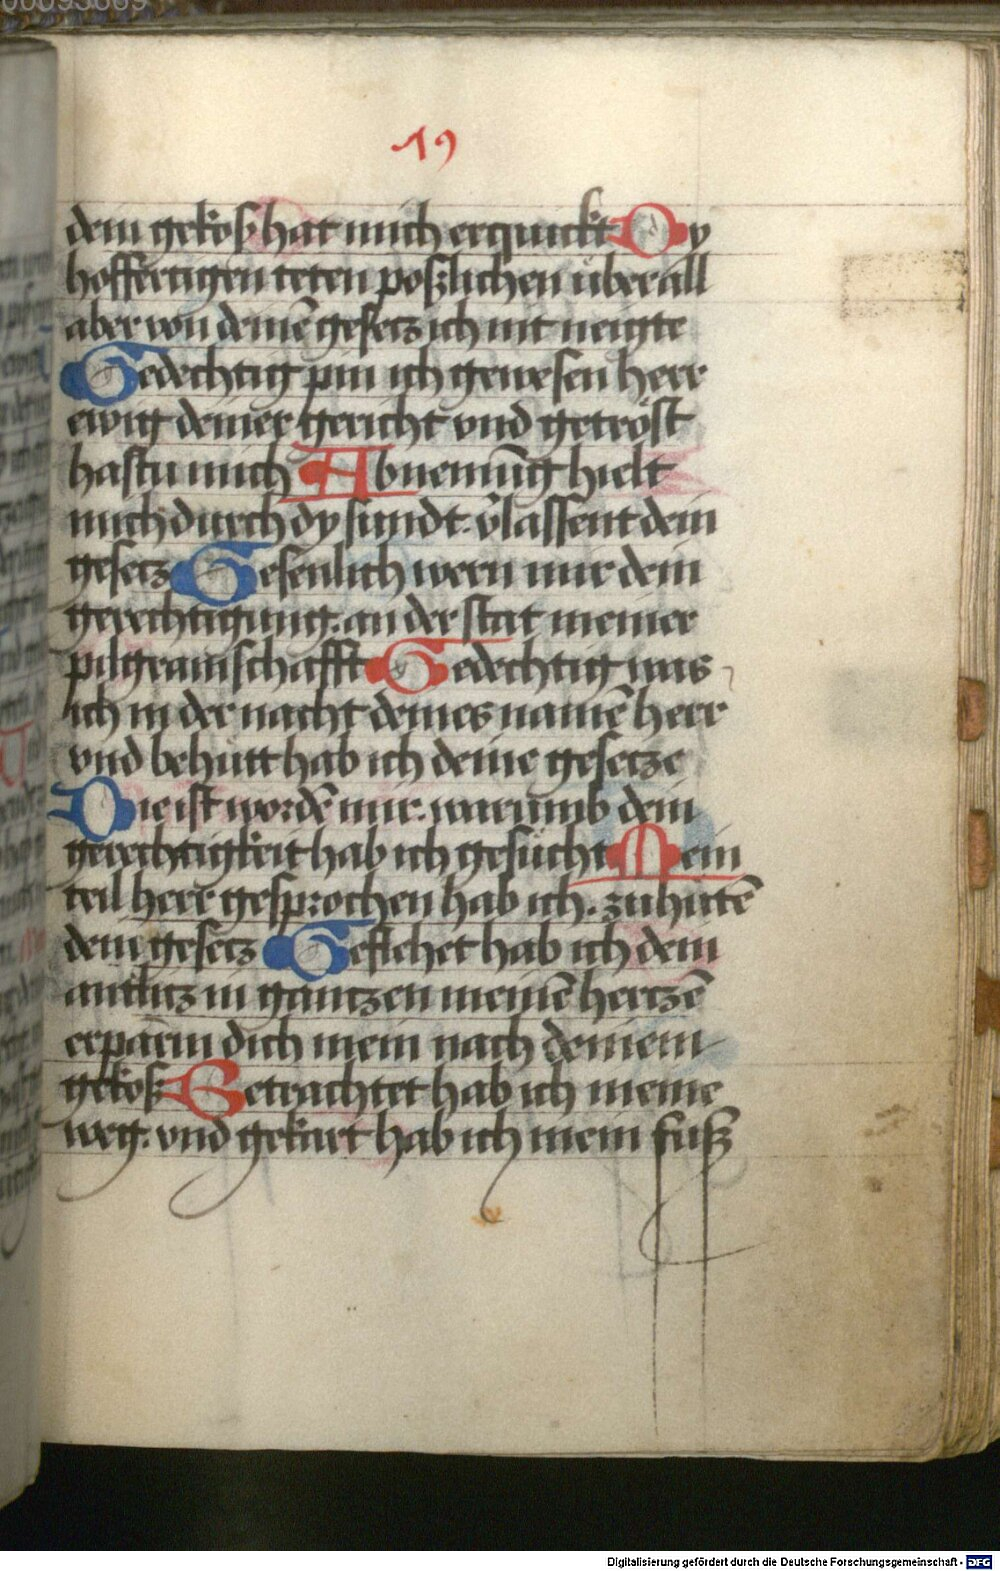 19
dein gekoß hat mich erquickt Dy
hoffertigen teten poßlichen überall
aber von deinē gesetz ich nit neigte
Gedechtig pin ich gewesen herr
ewig deiner gericht vnd getröst
hastu mich Abnemūg hielt
mich durch dy sundt. v̄lassent dein
gesetz Gesenlich wern mir dein
gerechtigung. an der stat meiner
pilgramschafft Gedechtig was
ich in der nacht deines namē herr
vnd behütt hab ich deine gesetze
Die ist wordē mir. warumb dein
gerechtigkeit hab ich gesücht Mein
teil herr gesprochen hab ich. zu hütē
dein gesetz Geflehet hab ich dein
antlitz in gantzen meinē hertzē
erparm dich mein nach deinem
gekoß Betrachtet hab ich meine
weg. vnd gekart hab ich mein fuß
Digitalisierung gefördert durch die Deutsche Forschungsgemeinschaft - DFG